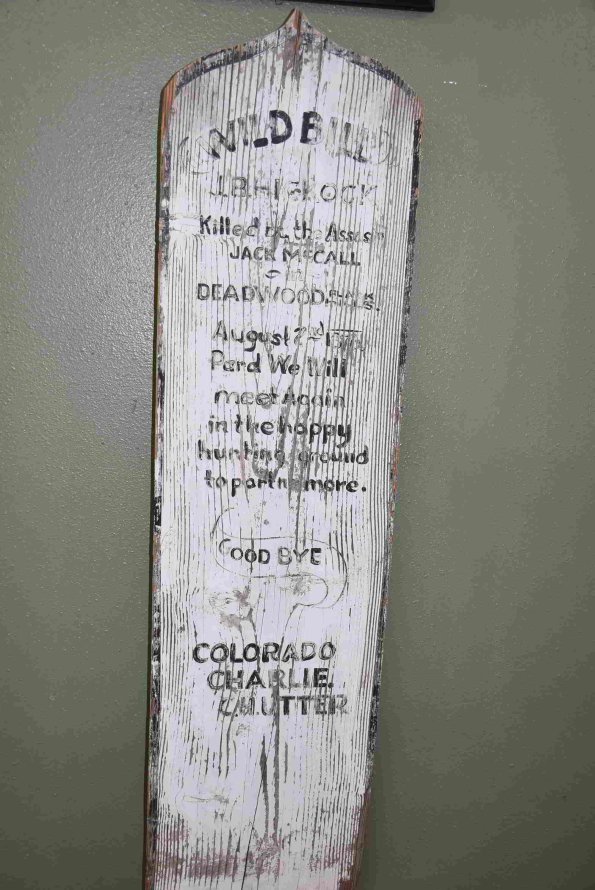 WILD BILL
J.B. HICKOCK
Killed by the Assasin
JACK McCALL
DEADWOOD
August 2nd 1876
Pard We Will
meet Again
in the happy
hunting ground
to part no more.
GOOD BYE
COLORADO
CHARLIE.
C.H. UTTER